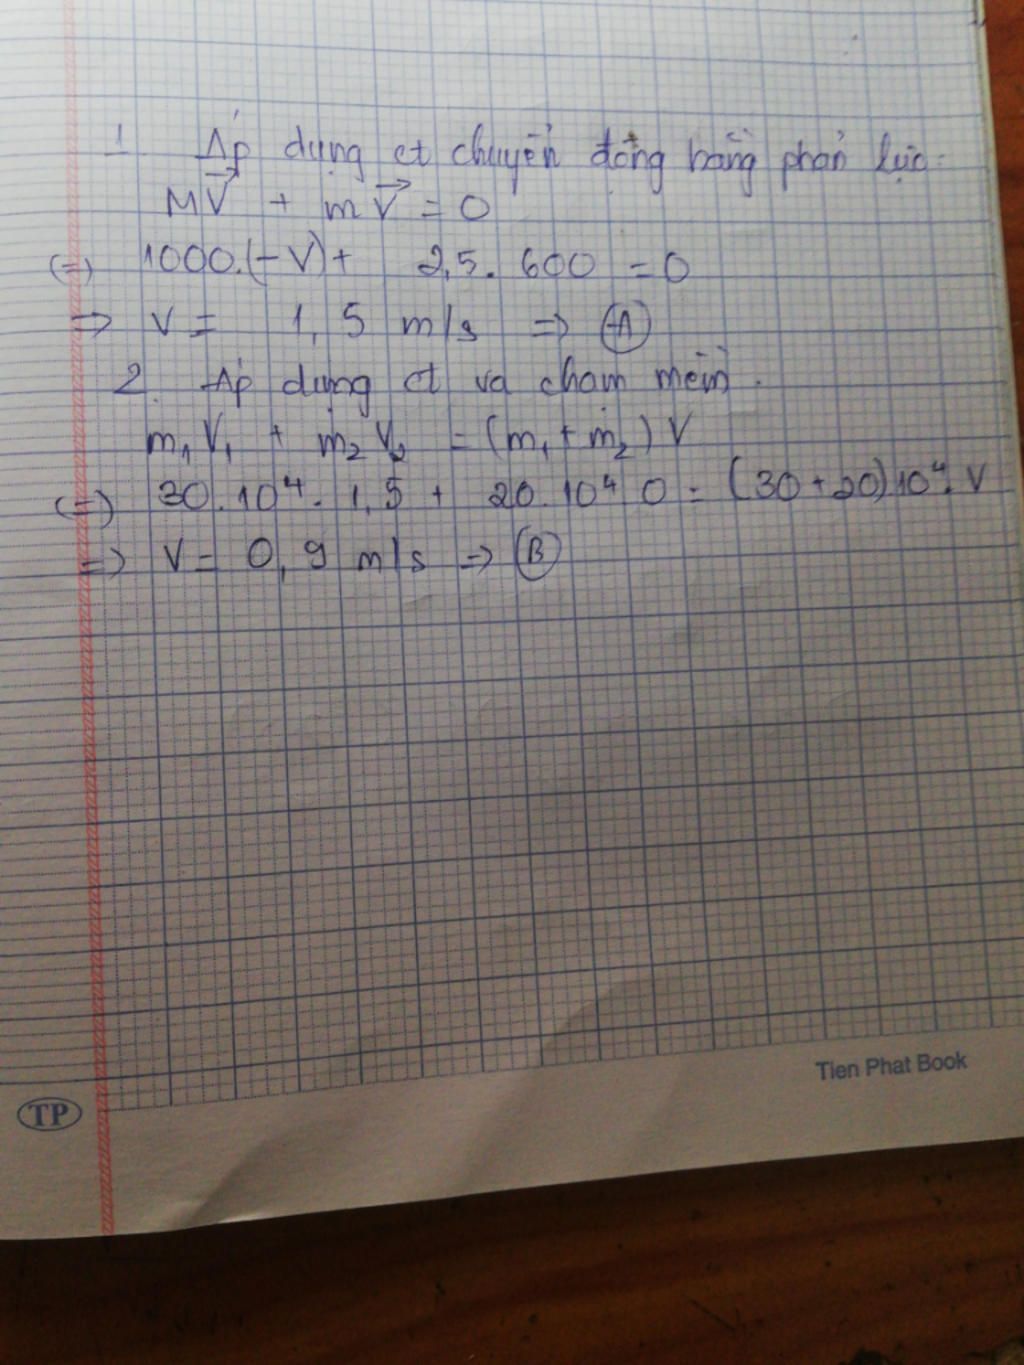 1. Áp dụng ct chuyển động bằng phản lực:
MV⃗ + mV⃗ = 0
(=) 1000.(-V) + 2,5. 600 = 0
=> V = 1,5 m/s => A
2. Áp dụng ct va chạm mềm.
m₁V₁ + m₂V₂ = (m₁ + m₂) V
(=) 30.10⁴. 1,5 + 20.10⁴ 0 = (30+20)10⁴.V
=> V = 0,9 m/s => B
Tien Phat Book
TP